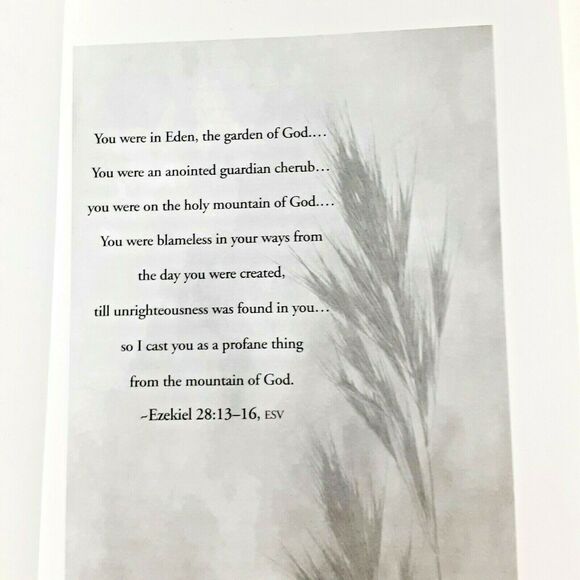 You were in Eden, the garden of God....
You were an anointed guardian cherub...
you were on the holy mountain of God....
You were blameless in your ways from
the day you were created,
till unrighteousness was found in you...
so I cast you as a profane thing
from the mountain of God.
~Ezekiel 28:13–16, ESV